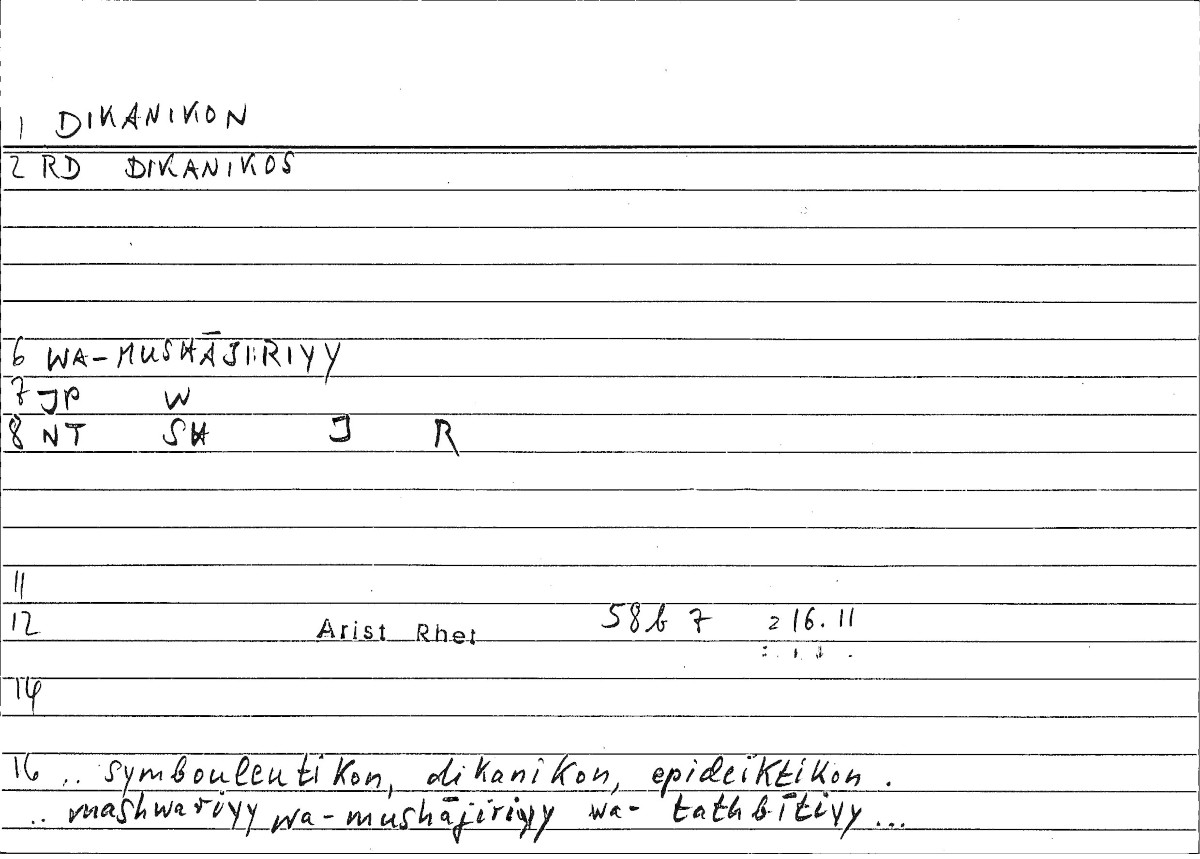 1 DIKANIKON
2 RD DIKANIKOS
6 WA-MUSHĀJIRIYY
7 JP W
8 NT SH J R
11
12 Arist Rhet 58b 7 216.11
14
16 .. symbouleutikon, dikanikon, epideiktikon.
.. mashwariyy wa-mushājiriyy wa-tathbītiyy...